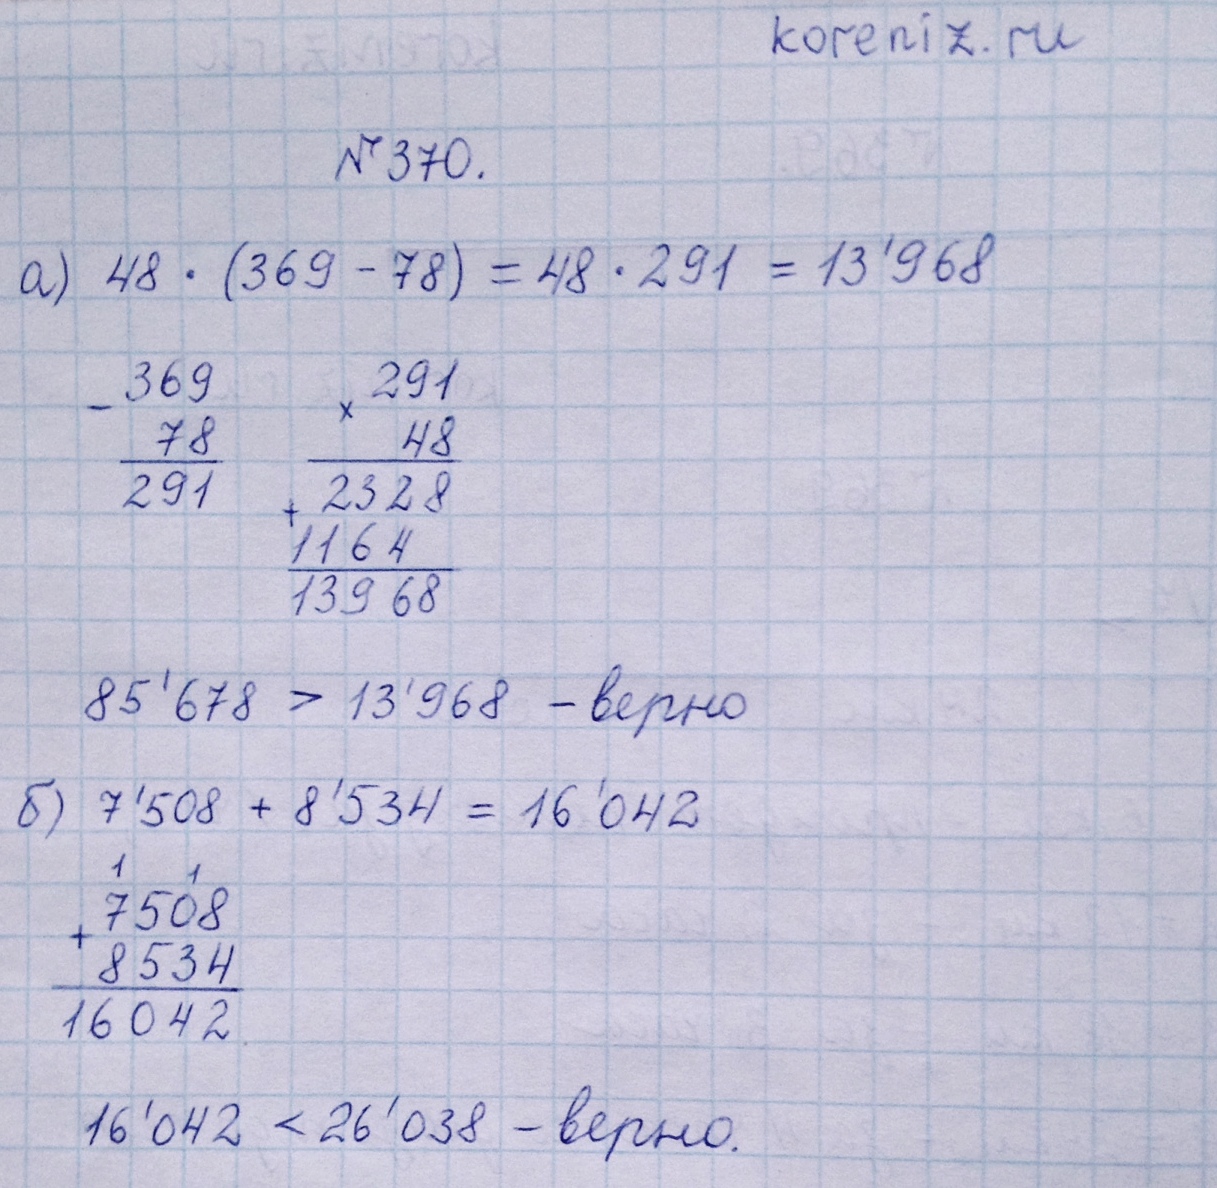 koreniz.ru
№370.
а) 48 · (369 - 78) = 48 · 291 = 13'968
- 369
78
291
× 291
48
+ 2328
1164
13968
85'678 > 13'968 - верно
б) 7'508 + 8'534 = 16'042
1 1
+ 7508
8534
16042
16'042 < 26'038 - верно.